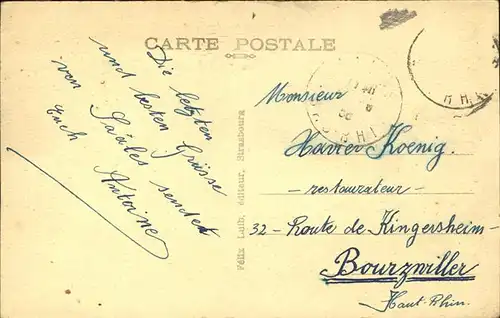 CARTE POSTALE
Die letzten
und besten Grüsse
von Saales sendet
Euch Antoine
Félix Luib, éditeur, Strasbourg
Monsieur
Xavier Koenig.
- restaurateur -
32 - Route de Kingersheim -
Bourzwiller
Haut-Rhin.